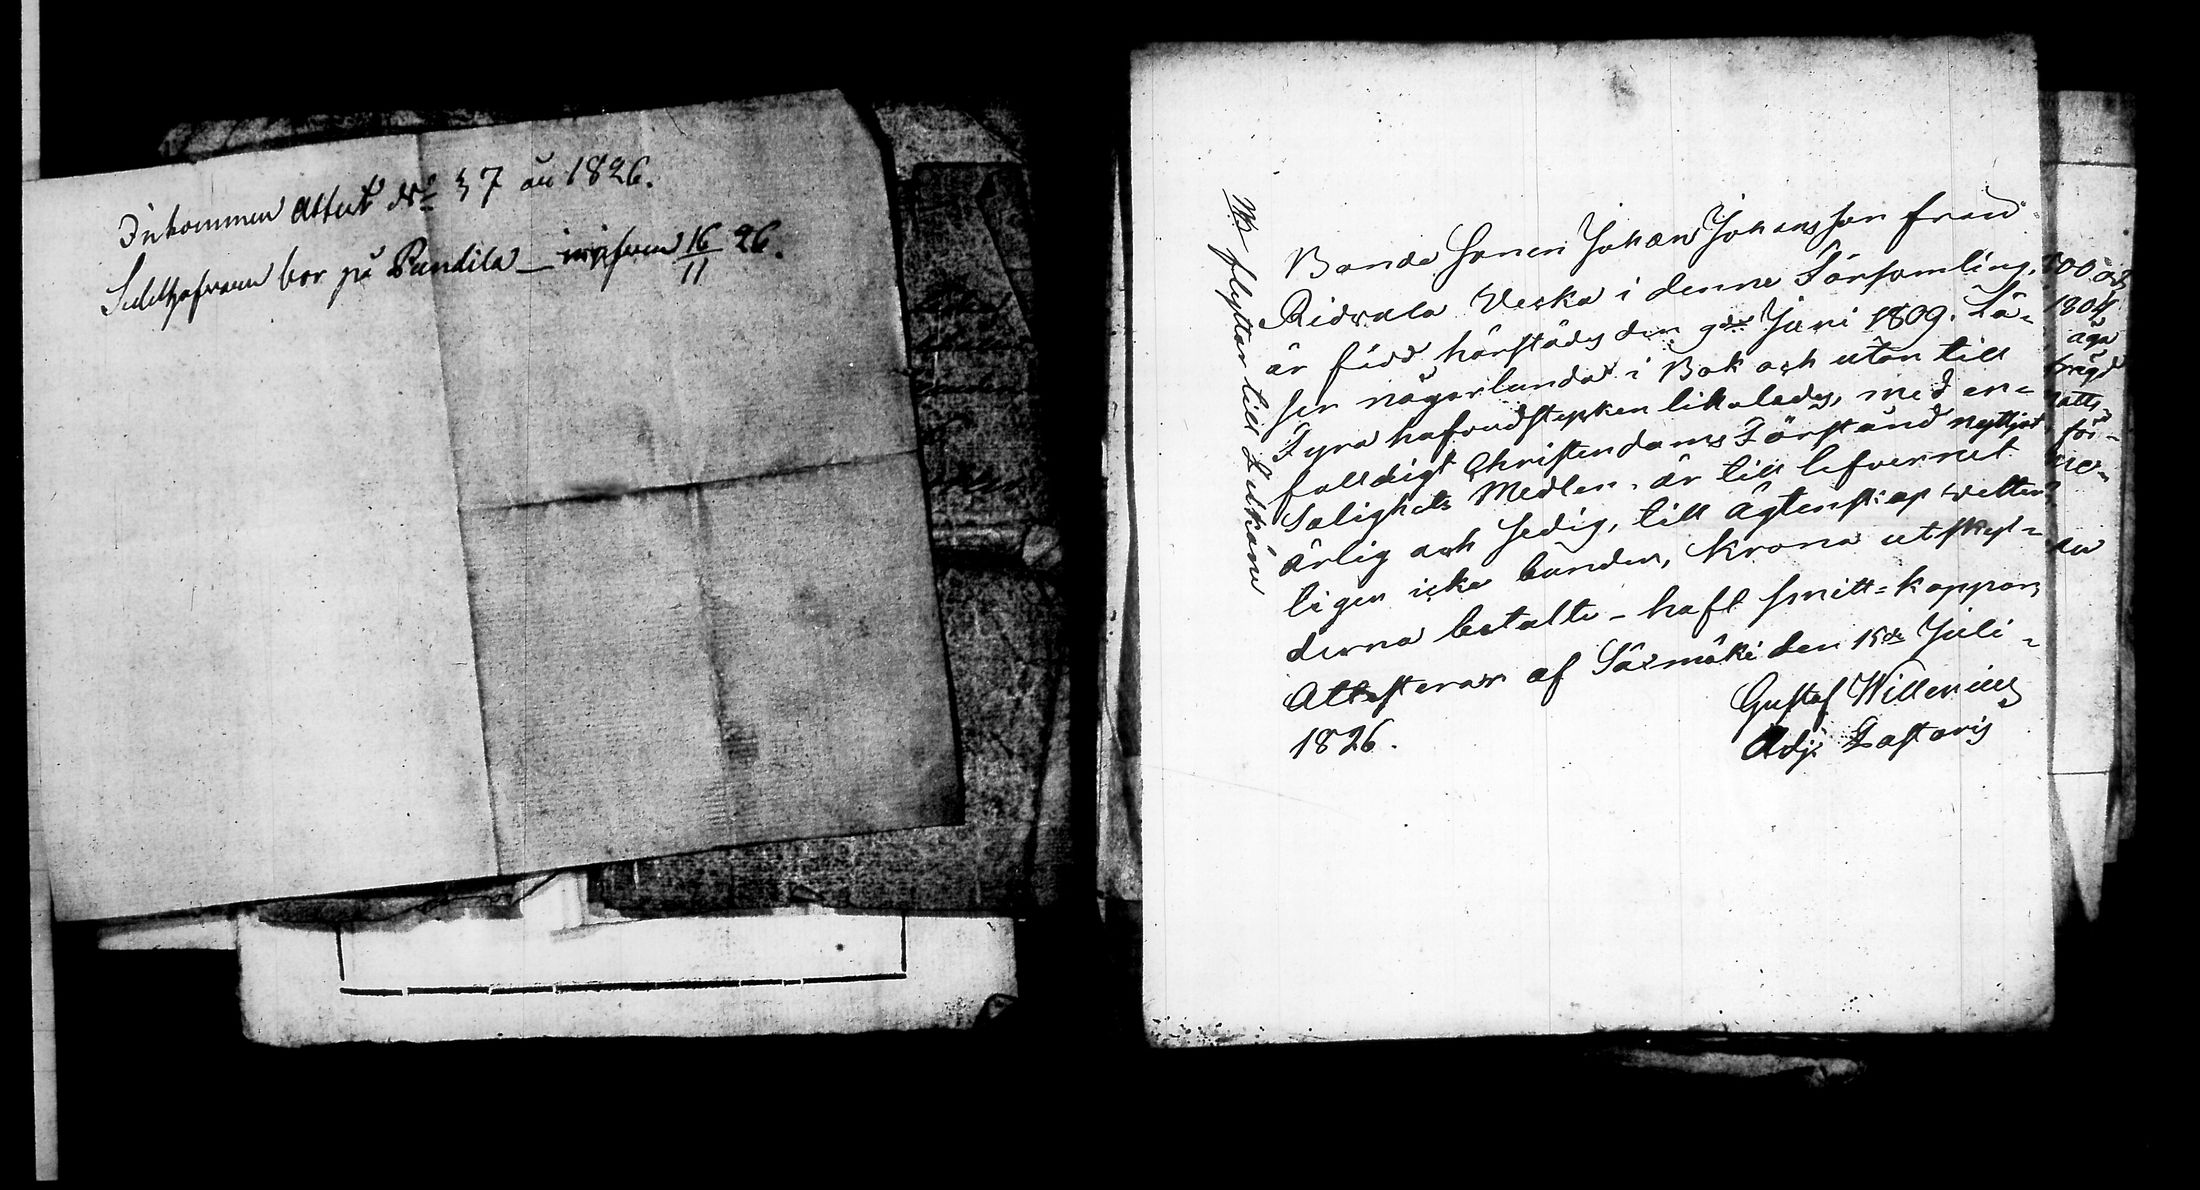 Inkommen Attest No 37 år 1826.
bor på Pundila _ 16/11 26.
Bonde Sonen Johan Johansson från
Ridvala Veska i denne Församling,
är född härstädes den 9de Juni 1809. Lä-
ser någorlunda i Bok och utan till
Fyra hafvudstycken likaledes, med en-
falldigt Christendoms Förstånd nyttjat
Salighets Medlen, är till lefvernet
ärlig och sedig, till ägtenskap vetter-
ligen icke bunden, Krono utskyl-
derna betalte - haft smitt-koppor,
Attesterar af Säxmäki den 15de Juli -
1826.
Gustaf Willenius
Adj. Pastoris
flyttar till
1804
äga
för-